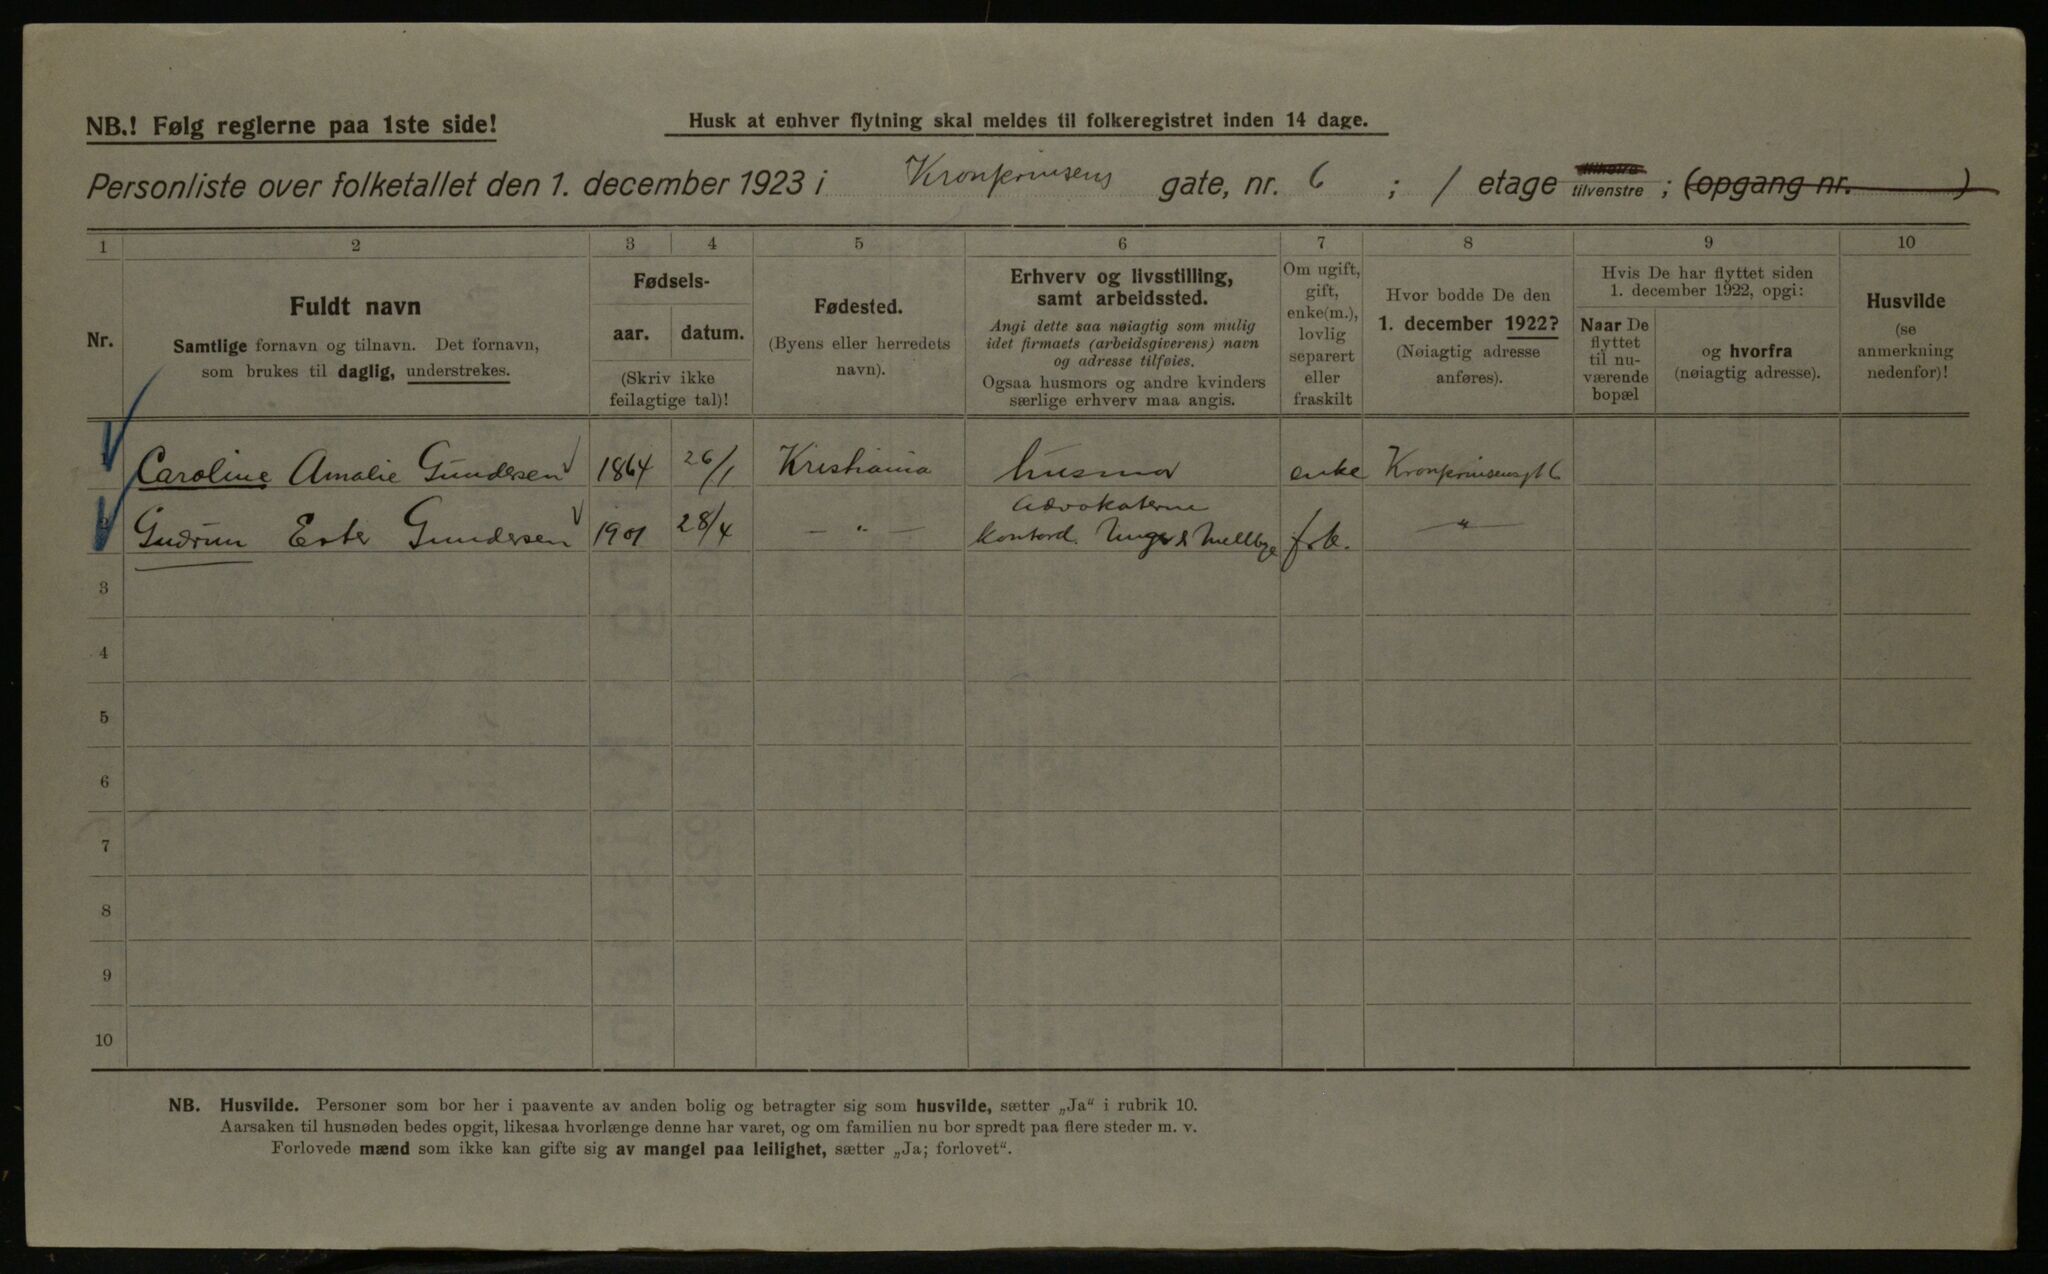 NB.! Følg reglerne paa 1ste side!
Husk at enhver flytning skal meldes til folkeregistret inden 14 dage.
Personliste over folketallet den 1. december 1923 i Kronprinsens gate, nr. 6 ; 1 etage tilhøire tilvenstre ; (opgang nr. )
1 2 3 4 5 6 7 8 9 10
Nr.
Fuldt navn
Samtlige fornavn og tilnavn. Det fornavn,
som brukes til daglig, understrekes.
Fødsels-
aar. datum.
(Skriv ikke
feilagtige tal)!
Fødested.
(Byens eller herredets
navn).
Erhverv og livsstilling,
samt arbeidssted.
Angi dette saa nøiagtig som mulig
idet firmaets (arbeidsgiverens) navn
og adresse tilføies.
Ogsaa husmors og andre kvinders
særlige erhverv maa angis.
Om ugift,
gift,
enke(m.),
lovlig
separert
eller
fraskilt
Hvor bodde De den
1. december 1922?
(Nøiagtig adresse
anføres).
Hvis De har flyttet siden
1. december 1922, opgi:
Naar De
flyttet
til nu-
værende
bopæl
og hvorfra
(nøiagtig adresse).
Husvilde
(se
anmerkning
nedenfor)!
Caroline Amalie Gundersen 1864 26/1 Kristiania husmor enke Kronprinsensgt 6
Advokaterne
2 Gudrun Ester Gundersen 1901 28/4 — " — kontord. Unger & Mellbye frk. — " —
3
4
5
6
7
8
9
10
NB. Husvilde. Personer som bor her i paavente av anden bolig og betragter sig som husvilde, sætter „Ja“ i rubrik 10.
Aarsaken til husnøden bedes opgit, likesaa hvorlænge denne har varet, og om familien nu bor spredt paa flere steder m. v.
Forlovede mænd som ikke kan gifte sig av mangel paa leilighet, sætter „Ja; forlovet“.